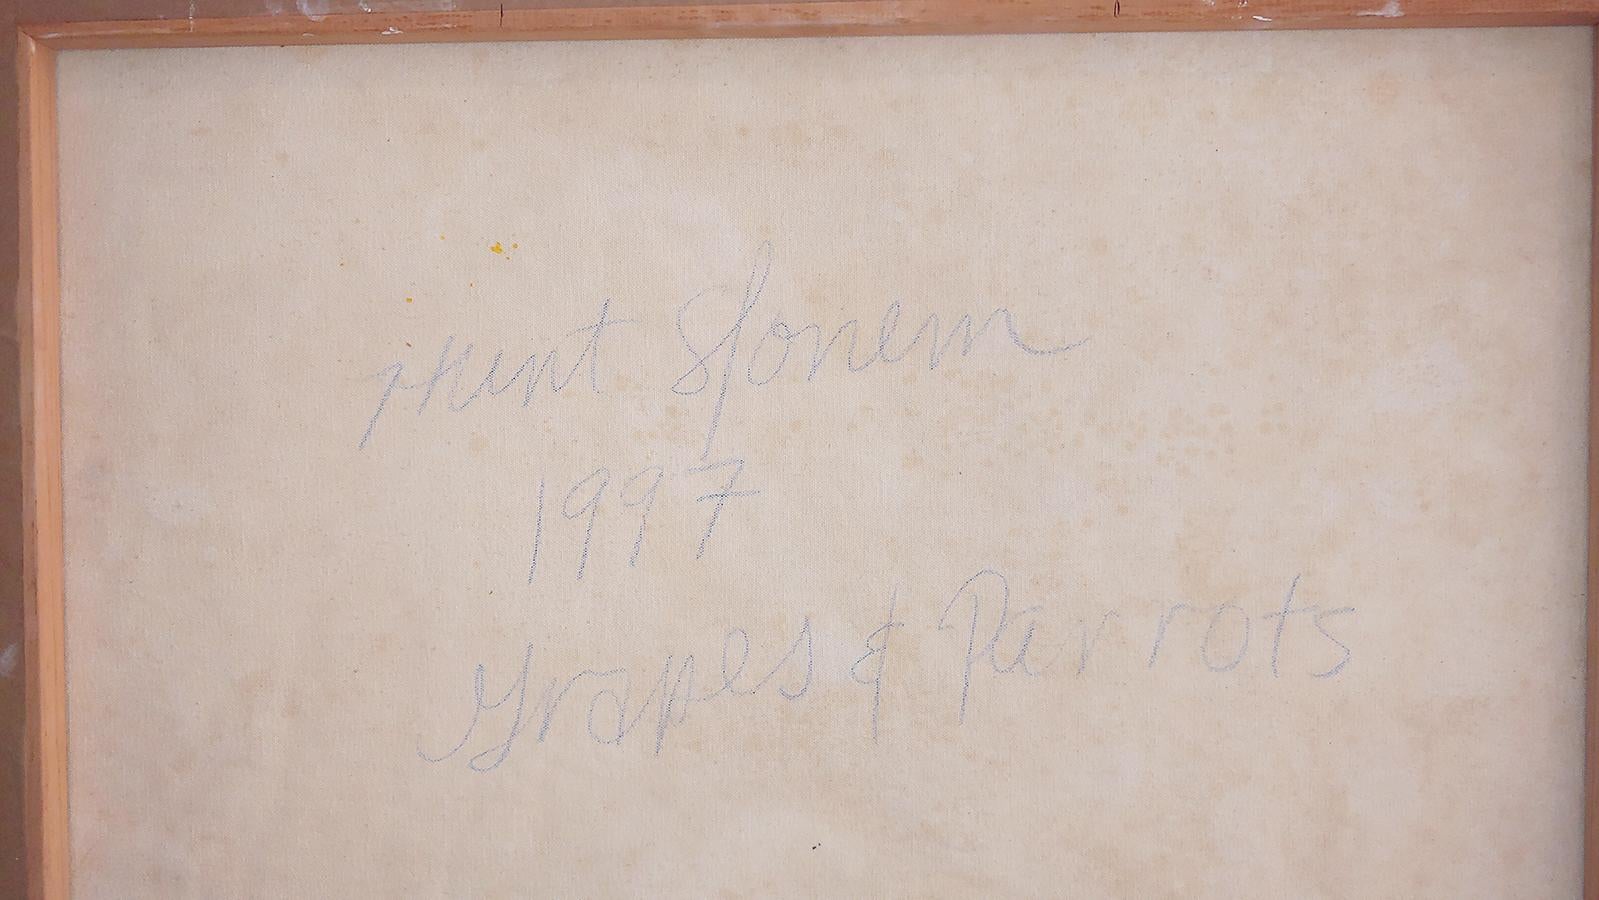 Hunt Slonem
1997
Grapes & Parrots